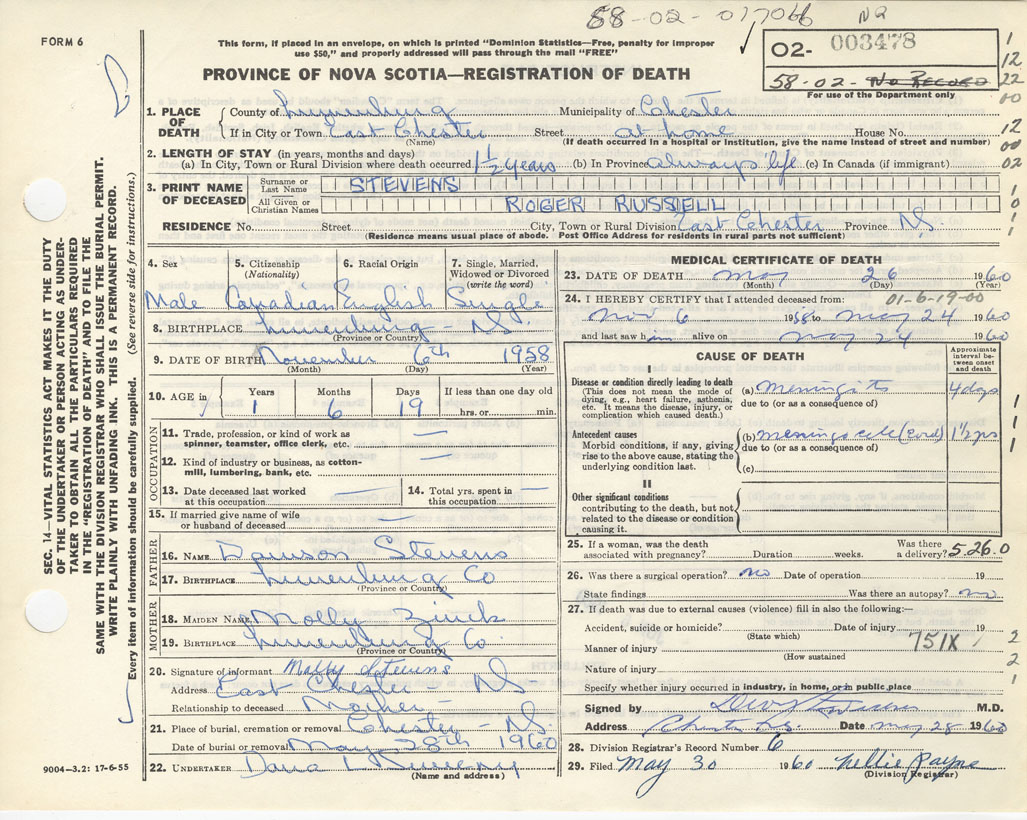 58-02-017066 NR
FORM 6
This form, if placed in an envelope, on which is printed "Dominion Statistics—Free, penalty for improper
use $50," and properly addressed will pass through the mail "FREE"
PROVINCE OF NOVA SCOTIA—REGISTRATION OF DEATH
02- 003478
58-02- No Record
For use of the Department only
1
12
22
00
12
00
02
1
0
1
1
1. PLACE OF DEATH
County of Lunenburg Municipality of Chester
If in City or Town East Chester Street at home House No.
(Name) (If death occurred in a hospital or Institution, give the name instead of street and number)
2. LENGTH OF STAY (in years, months and days)
(a) In City, Town or Rural Division where death occurred 1 1/2 years (b) In Province always life (c) In Canada (if immigrant)
3. PRINT NAME OF DECEASED
Surname or Last Name STEVENS
All Given or Christian Names ROGER RUSSELL
RESIDENCE No. Street City, Town or Rural Division East Chester Province N.S.
(Residence means usual place of abode. Post Office Address for residents in rural parts not sufficient)
4. Sex 5. Citizenship (Nationality) 6. Racial Origin 7. Single, Married, Widowed or Divorced (write the word)
Male Canadian English Single
8. BIRTHPLACE Lunenburg - N.S.
(Province or Country)
9. DATE OF BIRTH November 6th 1958
(Month) (Day) (Year)
10. AGE in Years Months Days If less than one day old
1 6 19 hrs. or min.
OCCUPATION
11. Trade, profession, or kind of work as spinner, teamster, office clerk, etc. —
12. Kind of industry or business, as cotton-mill, lumbering, bank, etc. —
13. Date deceased last worked at this occupation — 14. Total yrs. spent in this occupation —
15. If married give name of wife or husband of deceased —
FATHER
16. NAME Dawson Stevens
17. BIRTHPLACE Lunenburg Co
(Province or Country)
MOTHER
18. MAIDEN NAME Molly Zinck
19. BIRTHPLACE Lunenburg Co.
(Province or Country)
20. Signature of informant Molly Stevens
Address East Chester - N.S.
Relationship to deceased Mother -
21. Place of burial, cremation or removal Chester - N.S.
Date of burial or removal May 28th 1960
22. UNDERTAKER Dana L
(Name and address)
9004-3.2: 17-6-55
MEDICAL CERTIFICATE OF DEATH
23. DATE OF DEATH May 26 1960
(Month) (Day) (Year)
24. I HEREBY CERTIFY that I attended deceased from: 01-6-19-00
Nov 6 1958 to May 24 1960
and last saw him alive on May 24 1960
CAUSE OF DEATH
Approximate interval between onset and death
I
Disease or condition directly leading to death
(This does not mean the mode of dying, e.g., heart failure, asthenia, etc. It means the disease, injury, or complication which caused death.)
(a) Meningitis 4 days
due to (or as a consequence of)
Antecedent causes
Morbid conditions, if any, giving rise to the above cause, stating the underlying condition last.
(b) meningocele (Cord) 1½ yrs
due to (or as a consequence of)
(c)
II
Other significant conditions
contributing to the death, but not related to the disease or condition causing it.
1
1
1
25. If a woman, was the death associated with pregnancy? Duration weeks. Was there a delivery? 5.26.0
26. Was there a surgical operation? no Date of operation 19
State findings Was there an autopsy? no
27. If death was due to external causes (violence) fill in also the following:—
Accident, suicide or homicide? Date of injury 19
(State which)
Manner of injury 751X
(How sustained
Nature of injury
2
2
1
Specify whether injury occurred in industry, in home, or in public place
Signed by M.D.
Address Chester N.S. Date May 28 1960
28. Division Registrar's Record Number 6
29. Filed May 30 1960 Nellie Payne
(Division Registrar)
SEC. 14—VITAL STATISTICS ACT MAKES IT THE DUTY
OF THE UNDERTAKER OR PERSON ACTING AS UNDER-
TAKER TO OBTAIN ALL THE PARTICULARS REQUIRED
IN THE "REGISTRATION OF DEATH" AND TO FILE THE
SAME WITH THE DIVISION REGISTRAR WHO SHALL ISSUE THE BURIAL PERMIT.
WRITE PLAINLY WITH UNFADING INK. THIS IS A PERMANENT RECORD.
Every item of information should be carefully supplied. (See reverse side for instructions.)